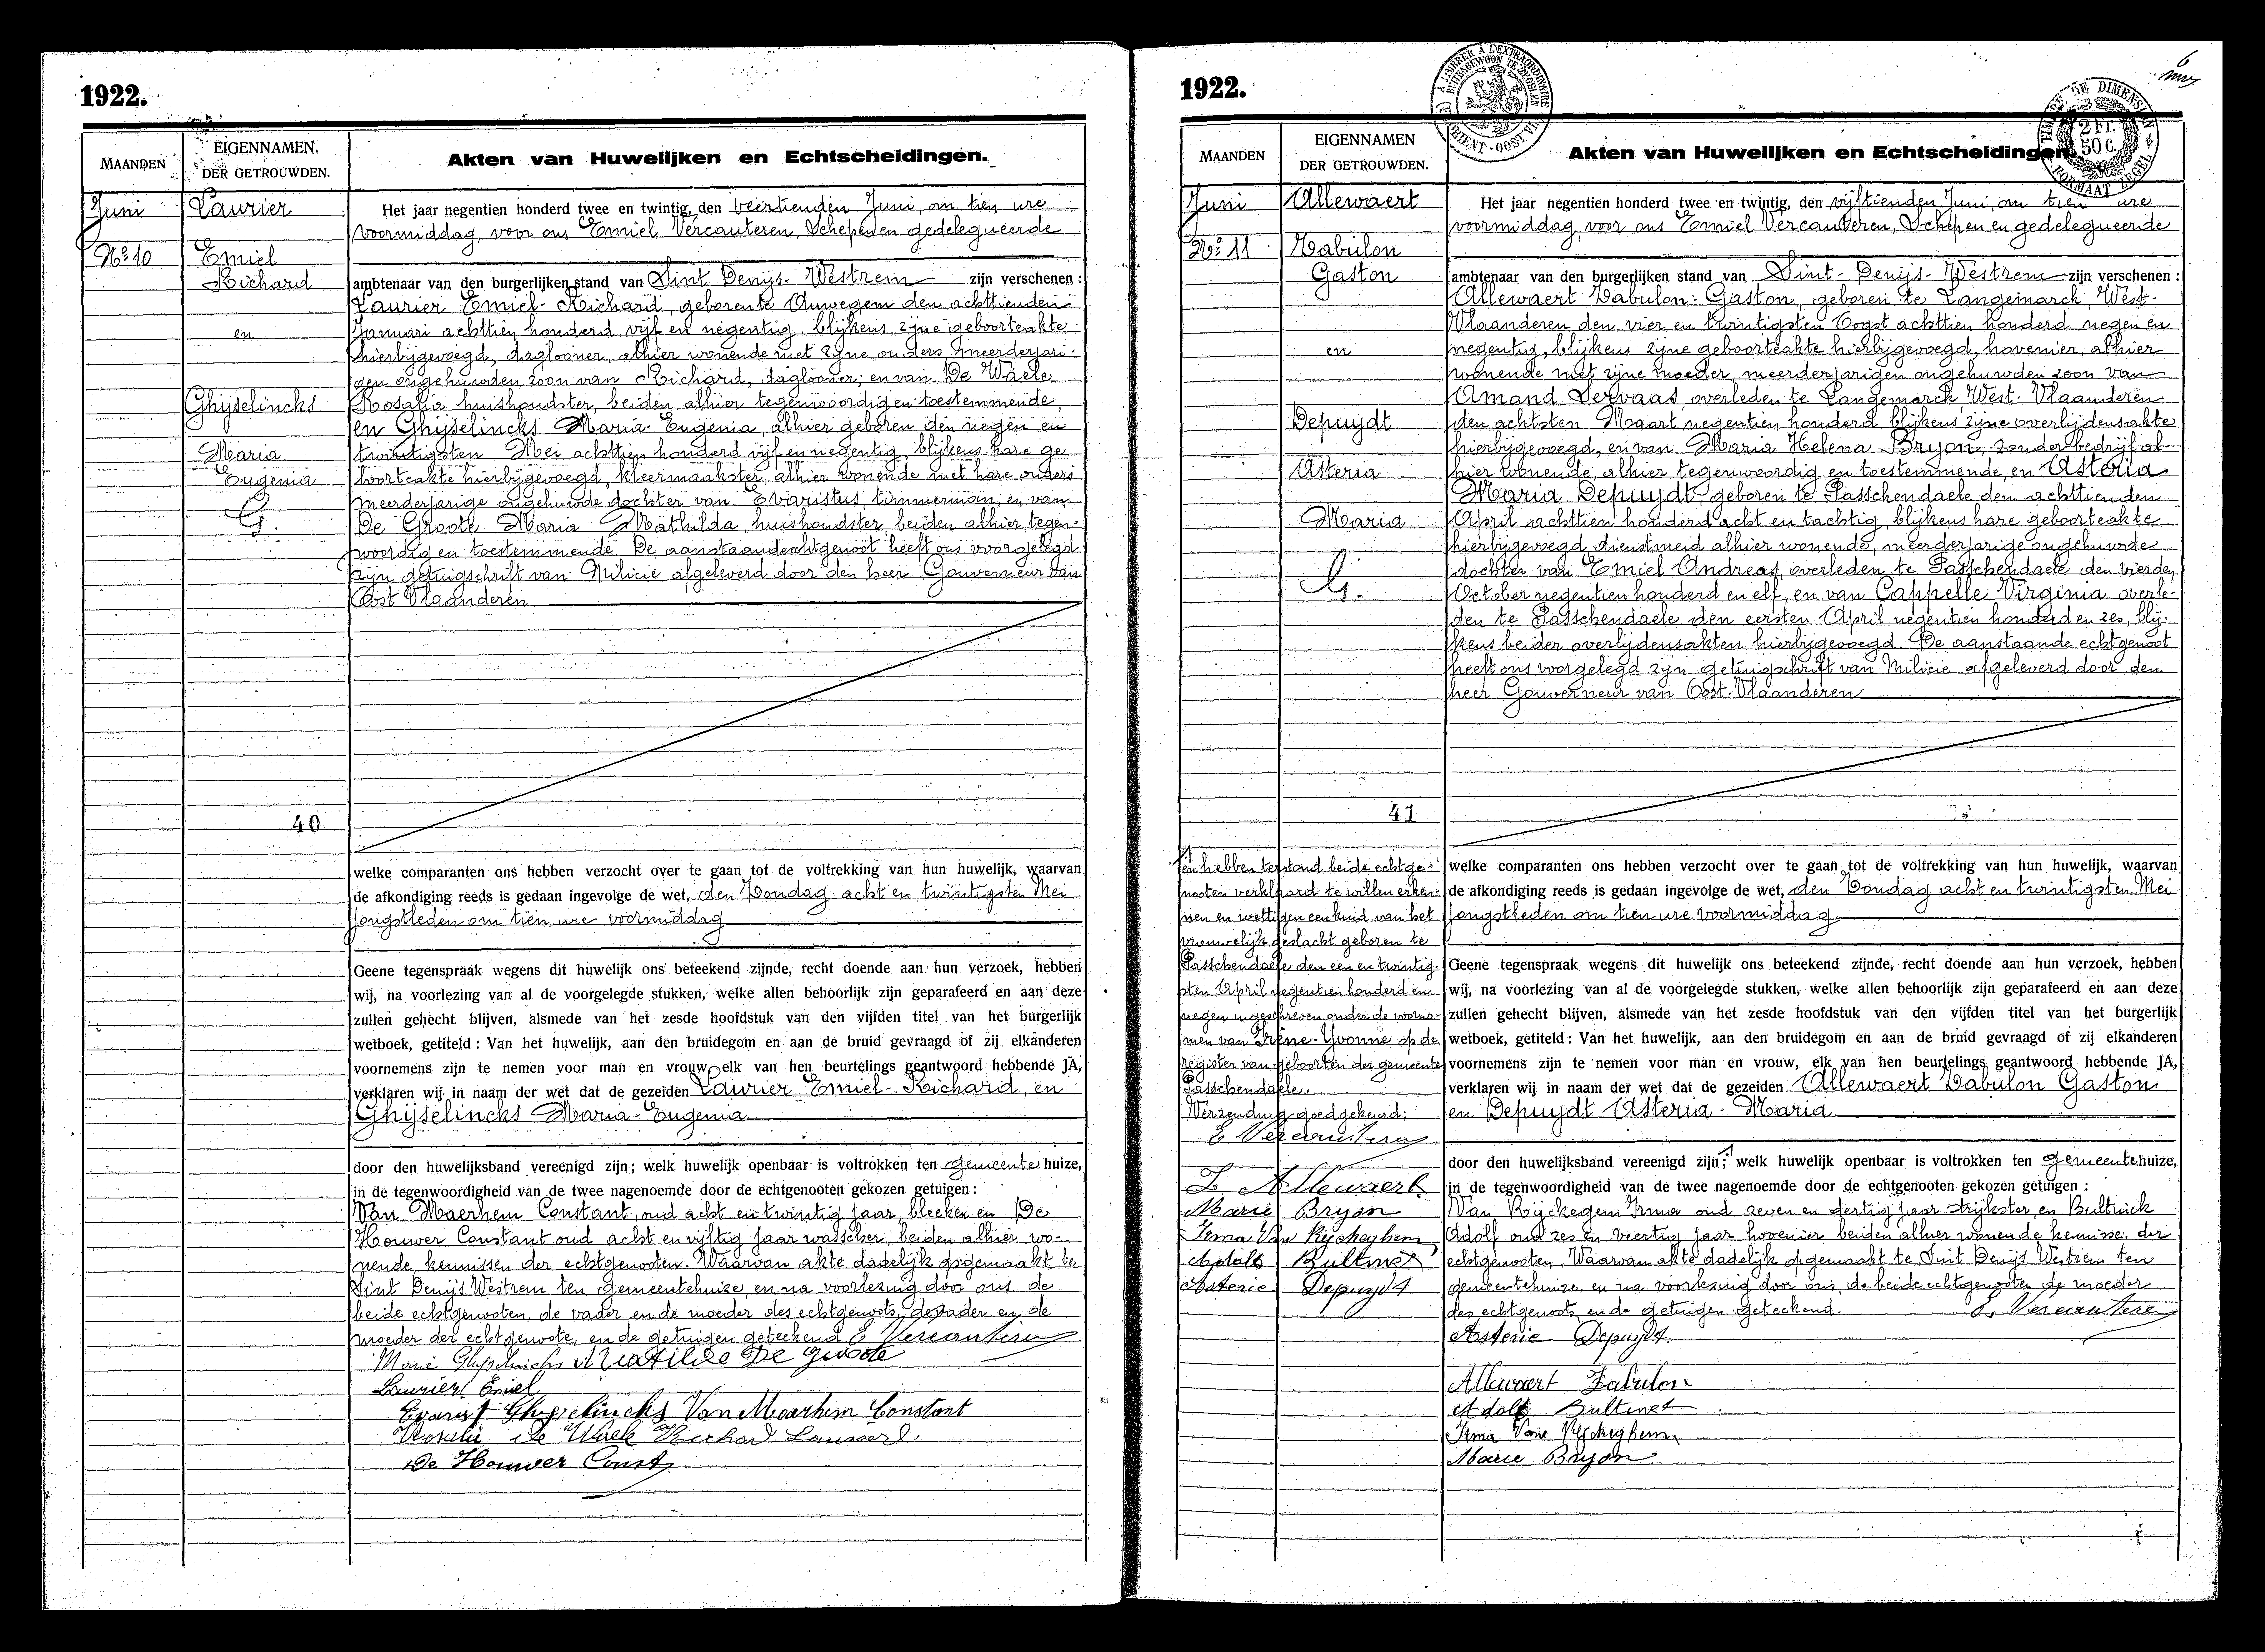 1922.
MAANDEN
EIGENNAMEN.
DER GETROUWDEN.
Akten van Huwelijken en Echtscheidingen.
Juni
Laurier
No 10
Emiel
Richard
en
Ghijselincks
Maria
Eugenia
G.
40
Het jaar negentien honderd twee en twintig, den veertienden Juni, om tien ure
voormiddag, voor ons Emiel Vercauteren, Schepen en gedelegueerde
ambtenaar van den burgerlijken stand van Sint Denijs-Westrem zijn verschenen :
Laurier Emiel-Richard, geboren te Auwegem den achttienden
Januari achttien honderd vijf en negentig blijkens zijne geboorteakte
hierbijgevoegd, daglooner, alhier wonende met zijne ouders meerderjari-
gen ongehuwden zoon van Richard, daglooner; en van De Waele
Rosalia huishoudster, beiden alhier tegenwoordig en toestemmende,
en Ghijselincks Maria-Eugenia, alhier geboren den negen en
twintigsten Mei achttien honderd vijf en negentig, blijkens hare ge
boorteakte hierbijgevoegd, kleermaakster, alhier wonende met hare ouders
meerderjarige ongehuwde dochter van Evaristus, timmerman, en van
De Groote Maria Mathilda, huishoudster, beiden alhier tegen-
woordig en toestemmende. De aanstaande echtgenoot heeft ons voorgelegd
zijn getuigschrift van Milicie afgeleverd door den heer Gouverneur van
Oost Vlaanderen
welke comparanten ons hebben verzocht over te gaan tot de voltrekking van hun huwelijk, waarvan
de afkondiging reeds is gedaan ingevolge de wet, den Zondag acht en twintigsten Mei
jongstleden om tien ure voormiddag
Geene tegenspraak wegens dit huwelijk ons beteekend zijnde, recht doende aan hun verzoek, hebben
wij, na voorlezing van al de voorgelegde stukken, welke allen behoorlijk zijn geparafeerd en aan deze
zullen gehecht blijven, alsmede van het zesde hoofdstuk van den vijfden titel van het burgerlijk
wetboek, getiteld : Van het huwelijk, aan den bruidegom en aan de bruid gevraagd of zij elkanderen
voornemens zijn te nemen voor man en vrouw, elk van hen beurtelings geantwoord hebbende JA,
verklaren wij in naam der wet dat de gezeiden Laurier Emiel-Richard, en
Ghijselincks Maria-Eugenia
door den huwelijksband vereenigd zijn; welk huwelijk openbaar is voltrokken ten Gemeentehuize,
in de tegenwoordigheid van de twee nagenoemde door de echtgenooten gekozen getuigen :
Van Maerhem Constant, oud acht en twintig jaar, bleeker en De
Houwer Constant oud acht en vijftig jaar wasscher, beiden alhier wo-
nende, kennissen der echtgenooten. Waarvan akte dadelijk opgemaakt te
Sint Denijs Westrem ten Gemeentehuize, en na voorlezing door ons de
beide echtgenooten, de vader en de moeder des echtgenoots, de vader en de
moeder der echtgenoote, en de getuigen geteekend E Vercauteren
Marie Ghijselincks Matilde De Groote
Laurier Emiel
Evarist Ghyselincks Van Maerhem Constant
Rosalie De Waele Richard
De Houwer Const
1922.
MAANDEN
EIGENNAMEN
DER GETROUWDEN.
Akten van Huwelijken en Echtscheidingen.
Juni
Allewaert
No 11
Zabulon
Gaston
en
Depuydt
Asteria
Maria
G.
41
Het jaar negentien honderd twee en twintig, den vijftienden Juni, om tien ure
voormiddag, voor ons Emiel Vercauteren, Schepen en gedelegueerde
ambtenaar van den burgerlijken stand van Sint-Denijs-Westrem zijn verschenen :
Allewaert Zabulon-Gaston, geboren te Langemarck, West-
Vlaanderen den vier en twintigsten Oogst achttien honderd negen en
negentig, blijkens zijne geboorteakte hierbijgevoegd, hovenier, alhier
wonende met zijne moeder, meerderjarigen ongehuwden zoon van
Amand Servaas, overleden te Langemarck, West-Vlaanderen
den achtsten Maart negentien honderd blijkens zijne overlijdensakte
hierbijgevoegd, en van Maria Helena Bryon, zonder bedrijf al-
hier wonende, alhier tegenwoordig en toestemmende, en Asteria
Maria Depuydt, geboren te Passchendaele den achttienden
April achttien honderd acht en tachtig, blijkens hare geboorteakte
hierbijgevoegd, dienstmeid alhier wonende, meerderjarige ongehuwde
dochter van Emiel Andreas overleden te Passchendaele den vierden
October negentien honderd en elf, en van Cappelle Virginia overle-
den te Passchendaele den eersten April negentien honderd en zes, blij-
kens beider overlijdensakten hierbijgevoegd. De aanstaande echtgenoot
heeft ons voorgelegd zijn getuigschrift van Milicie afgeleverd door den
heer Gouverneur van Oost-Vlaanderen
welke comparanten ons hebben verzocht over te gaan tot de voltrekking van hun huwelijk, waarvan
de afkondiging reeds is gedaan ingevolge de wet, den Zondag acht en twintigsten Mei
jongstleden om tien ure voormiddag
Geene tegenspraak wegens dit huwelijk ons beteekend zijnde, recht doende aan hun verzoek, hebben
wij, na voorlezing van al de voorgelegde stukken, welke allen behoorlijk zijn geparafeerd en aan deze
zullen gehecht blijven, alsmede van het zesde hoofdstuk van den vijfden titel van het burgerlijk
wetboek, getiteld : Van het huwelijk, aan den bruidegom en aan de bruid gevraagd of zij elkanderen
voornemens zijn te nemen voor man en vrouw, elk van hen beurtelings geantwoord hebbende JA,
verklaren wij in naam der wet dat de gezeiden Allewaert Zabulon Gaston
en Depuydt Asteria-Maria
door den huwelijksband vereenigd zijn; welk huwelijk openbaar is voltrokken ten Gemeentehuize,
in de tegenwoordigheid van de twee nagenoemde door de echtgenooten gekozen getuigen :
Van Rijckegem Irma oud zeven en dertig jaar strijkster, en Bultinck
Adolf oud zes en veertig jaar hovenier beiden alhier wonende kennissen der
echtgenooten. Waarvan akte dadelijk opgemaakt te Sint Denijs Westrem ten
gemeentehuize en na voorlezing door ons, de beide echtgenooten de moeder
des echtgenoots, en de getuigen geteekend. E. Vercauteren
Asterie Depuydt
Allewaert Zabulon
Adolf Bultinck
Irma Van Ryckeghem
Marie Bryon
en hebben terstond beide echtge-
nooten verklaard te willen erken-
nen en wettigen een kind van het
vrouwelijk geslacht geboren te
Passchendaele den een en twintig-
sten April negentien honderd en
negen ingeschreven onder de voorna-
men van Irène-Yvonne op de
register van geboorten der gemeente
Passchendaele.
Verzending goedgekeurd:
E Vercauteren
Z Allewaert
Marie Bryon
Irma Van Ryckeghem
Adolf Bultinck
Asterie Depuydt